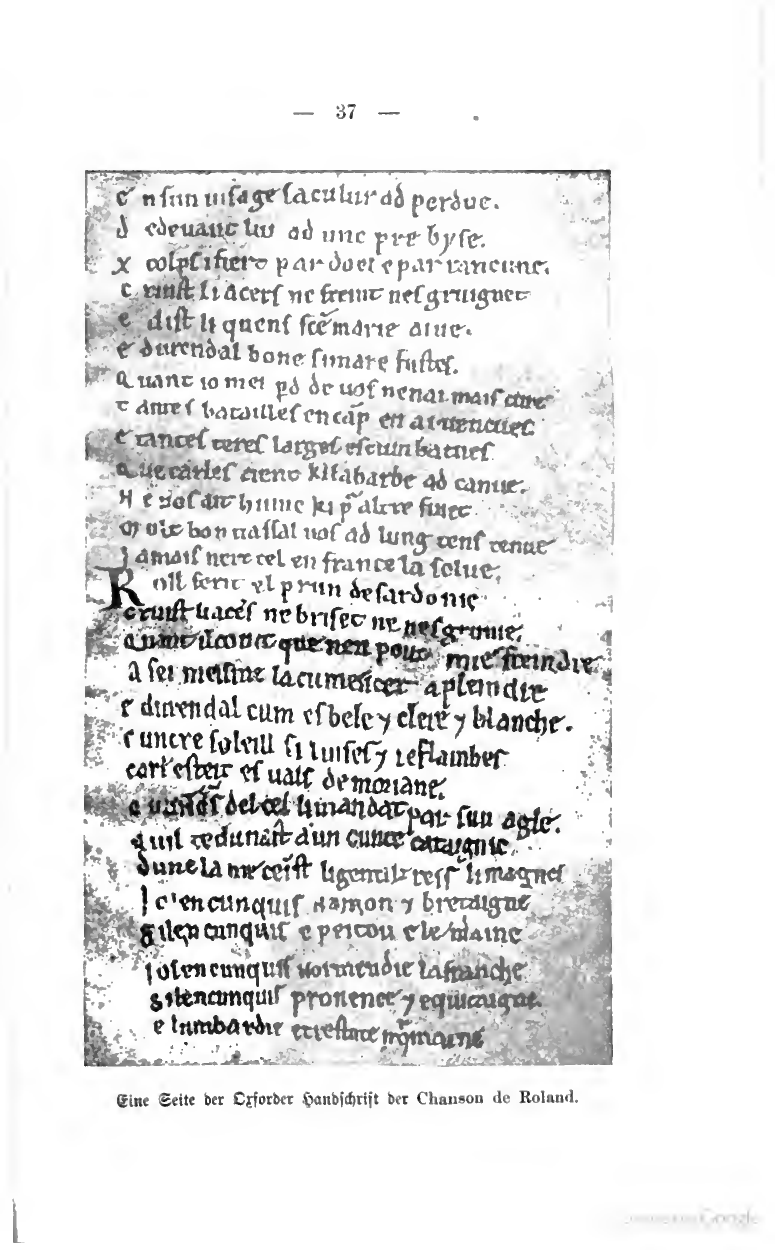 — 37 —
e n sun uisage sa culur ad perdue.
d edeuant lui ad une perre byse.
x colps i fiert par doel e par rancune.
c ruist li acers ne freint ne sesgruignet
e dist li quens sc̃e marie aiue.
e durendal bone si mare fustes.
q uant io mei ꝑd de uos nenai mais cure
t antes batailles en cãp en ai uencues
e tantes teres larges escumbatues
q ue carles tient ki la barbe ad canue.
n e uos ait hume ki pur altre fuiet
m ult bon uassal uos ad lung tens tenue
j amais nert tel en france la solue.
R oll ferit el prun de sardonie
c ruist li acers ne briset ne nesgrunie.
q uant il co uit que nen pout mie freindre
a sei meisme la cumencet a pleindre
e durendal cum es bele ⁊ clere ⁊ blanche.
c untre soleill si luises ⁊ reflambes
carl esteit es uals de moriane.
q uant ds̃ del cel li mandat par sun agle.
q uil te dunast a un cunte cataignie.
dunc la me ceist li gentilz reis li magnes
J o len cunquis namon ⁊ bretaigne
s i len cunquis e peitou e le maine
j o len cunquis normendie la franche
s i len cunquis prouence ⁊ equitaigne
e lumbardie e trestute romaine
Eine Seite der Oxforder Handschrift der Chanson de Roland.
Google